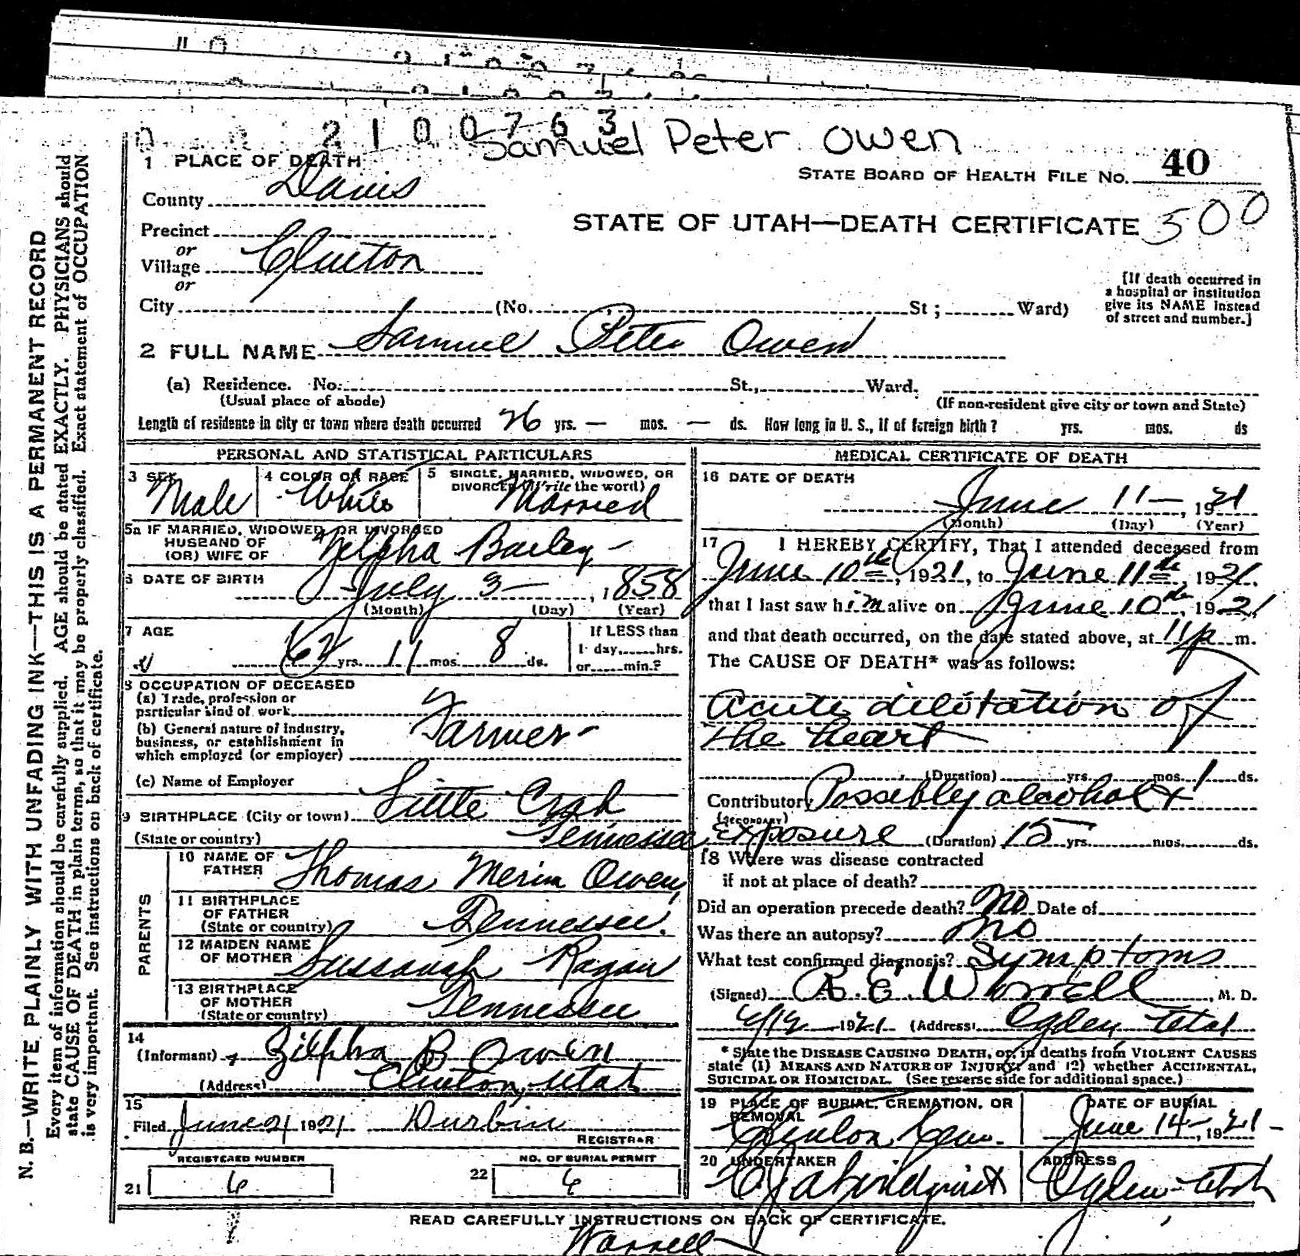 2100763
Samuel Peter Owen
STATE BOARD OF HEALTH FILE NO. 40
STATE OF UTAH—DEATH CERTIFICATE 500
1 PLACE OF DEATH
County Davis
Precinct
or
Village Clinton
or
City (No. St ; Ward)
[If death occurred in
a hospital or institution
give its NAME instead
of street and number.]
2 FULL NAME Samuel Peter Owen
(a) Residence. No. St., Ward.
(Usual place of abode) (If non-resident give city or town and State)
Length of residence in city or town where death occurred 26 yrs. — mos. — ds. How long in U. S., if of foreign birth? yrs. mos. ds
PERSONAL AND STATISTICAL PARTICULARS
3 SEX Male
4 COLOR OR RACE White
5 SINGLE, MARRIED, WIDOWED, OR
DIVORCED (Write the word)
Married
5a IF MARRIED, WIDOWED, OR DIVORCED
HUSBAND OF
(OR) WIFE OF Zelpha Barley
6 DATE OF BIRTH July 3— , 1858
(Month) (Day) (Year)
7 AGE 62 yrs. 11 mos. 8 ds.
If LESS than
1 day, hrs.
or min.?
8 OCCUPATION OF DECEASED
(a) Trade, profession or
particular kind of work
(b) General nature of industry,
business, or establishment in
which employed (or employer)
Farmer
(c) Name of Employer
9 BIRTHPLACE (City or town)
(State or country) Tennessee
PARENTS
10 NAME OF
FATHER Thomas Owen
11 BIRTHPLACE
OF FATHER
(State or country) Tennessee.
12 MAIDEN NAME
OF MOTHER Sussanah Ragan
13 BIRTHPLACE
OF MOTHER
(State or country) Tennessee
14
(Informant) Zilpha B Owen
(Address) Clinton, Utah
15
Filed June 21 1921 Durbin
REGISTRAR
REGISTERED NUMBER
21 6
NO. OF BURIAL PERMIT
22 6
MEDICAL CERTIFICATE OF DEATH
16 DATE OF DEATH
June 11— , 1921
(Month) (Day) (Year)
17 I HEREBY CERTIFY, That I attended deceased from
June 10th, 1921, to June 11th, 1921.
that I last saw him alive on June 10th, 1921
and that death occurred, on the date stated above, at 11 p m.
The CAUSE OF DEATH* was as follows:
Acute dilitation of
the heart
(Duration) yrs. mos. 1 ds.
Contributory Possibly alcohol +
(SECONDARY)
exposure (Duration) 15 yrs. mos. ds.
18 Where was disease contracted
if not at place of death?
Did an operation precede death? No Date of
Was there an autopsy? no
What test confirmed diagnosis? Symptoms
(Signed) R. E. Worrell , M. D.
6/12 1921 (Address) Ogden Utah
* State the DISEASE CAUSING DEATH, or, in deaths from VIOLENT CAUSES
state (1) MEANS AND NATURE OF INJURY and (2) whether ACCIDENTAL,
SUICIDAL OR HOMICIDAL. (See reverse side for additional space.)
19 PLACE OF BURIAL, CREMATION, OR
REMOVAL
Clinton Cem.
DATE OF BURIAL
June 14— , 1921—
20 UNDERTAKER
Lindquist
ADDRESS
Ogden Utah
READ CAREFULLY INSTRUCTIONS ON BACK OF CERTIFICATE.
N. B.—WRITE PLAINLY WITH UNFADING INK—THIS IS A PERMANENT RECORD
Every item of information should be carefully supplied. AGE should be stated EXACTLY. PHYSICIANS should
state CAUSE OF DEATH in plain terms, so that it may be properly classified. Exact statement of OCCUPATION
is very important. See instructions on back of certificate.